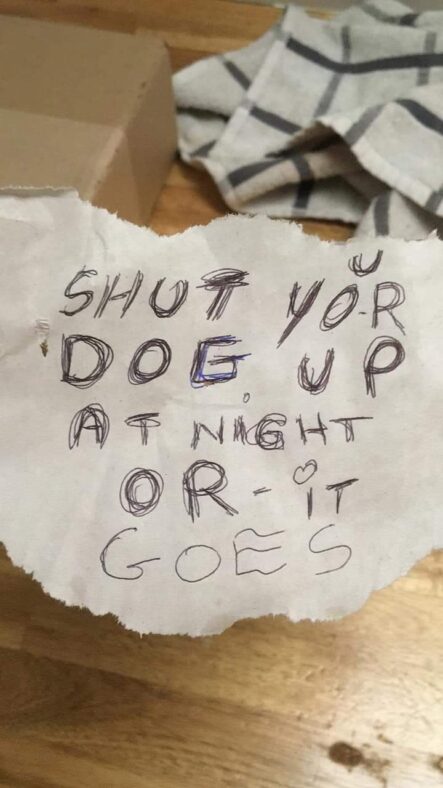 SHUT YOUR
DOG UP
AT NIGHT
OR-IT
GOES